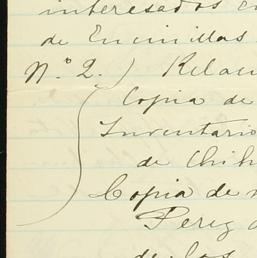 interesados en
de Encinillas
N.º 2. ) Relac
Copia de
Inventario
de Chih
Copia de
Perez
de los